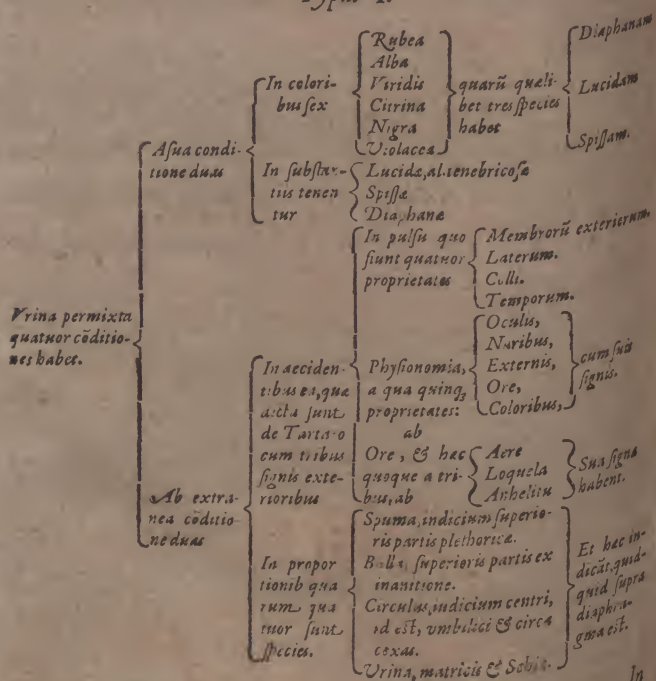 Vrina permixta
quatuor cōditio-
nes habet.
A sua condi-
tione duas
In colori-
bus sex
Rubea
Alba
Viridis
Citrina
Nigra
Violacea
quarū quæli-
bet tres species
habet
Diaphanam
Lucidam
Spissam.
In substan-
tiis tenen
tur
Lucidæ, al. tenebricosæ
Spissæ
Diaphanæ
Ab extra-
nea cōditio-
ne duas
In acciden-
tibus ea, quæ
dicta sunt
de Tartaro
cum tribus
signis exte-
rioribus
In pulsu quo
fiunt quatuor
proprietates
Membrorū exteriorum.
Laterum.
Colli.
Temporum.
Physionomia,
a qua quinq,
proprietates:
ab
Oculis,
Naribus,
Externis,
Ore,
Coloribus,
cum suis
signis.
Ore, & hæc
quoque a tri-
bus, ab
Aere
Loquela
Anhelitu
Sua signa
habent.
In propor
tionib qua
rum qua
tuor sunt
species.
Spuma, indicium superio-
ris partis plethoricæ.
Bulla, superioris partis ex
inanitione.
Circulus, indicium centri,
id est, vmbilici & circa
coxas.
Urina, matricis &
Et hæc in-
dicāt, quid-
quid supra
diaphra-
gma est.
In